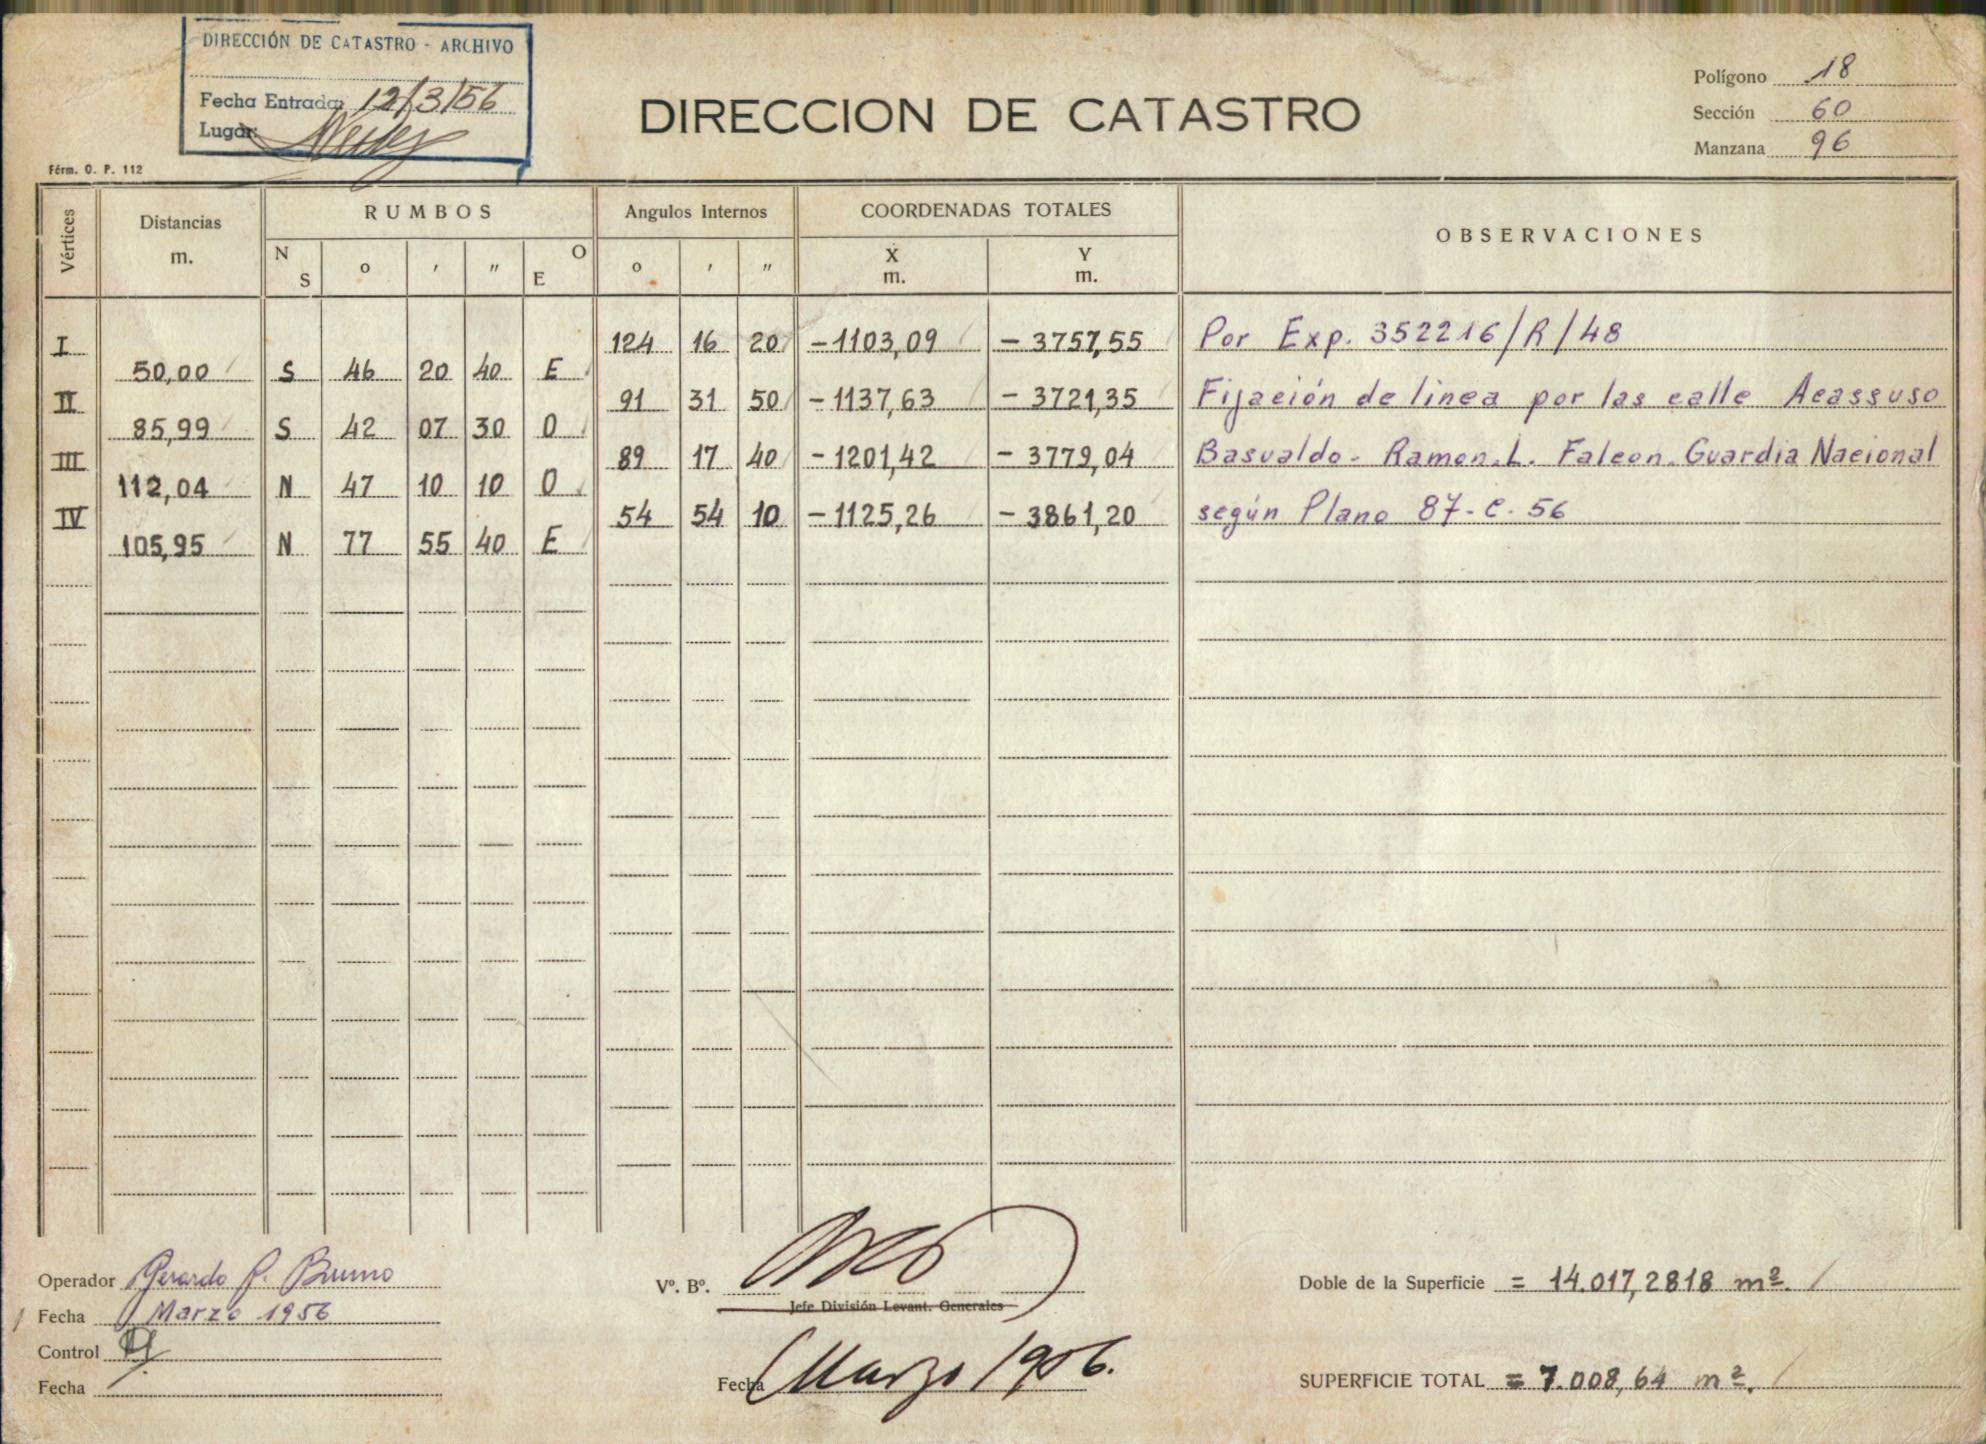 DIRECCIÓN DE CATASTRO - ARCHIVO
Fecha Entrada: 12/3/56
Lugar:
DIRECCION DE CATASTRO
Polígono 18
Sección 60
Manzana 96
Fórm. O. P. 112
Vértices
Distancias
m.
RUMBOS
N
S
o
'
"
O
E
Angulos Internos
o
'
"
COORDENADAS TOTALES
X
m.
Y
m.
OBSERVACIONES
I 124 16 20 -1103,09 - 3757,55 Por Exp. 352216/R/48
50,00 S 46 20 40 E
II 91 31 50 -1137,63 - 3721,35 Fijación de linea por las calle Acassuso
85,99 S 42 07 30 O
III 89 17 40 -1201,42 - 3779,04 Basualdo - Ramon. L. Falcon. Guardia Nacional
112,04 N 47 10 10 O
IV 54 54 10 -1125,26 - 3861,20 según Plano 87-C-56
105,95 N 77 55 40 E
Operador Gerardo P. Bruno
Fecha Marzo 1956
Control
Fecha
Vº. Bº.
Jefe División Levant. Generales
Fecha Marzo 1956.
Doble de la Superficie = 14.017,2818 m².
SUPERFICIE TOTAL = 7.008,64 m².